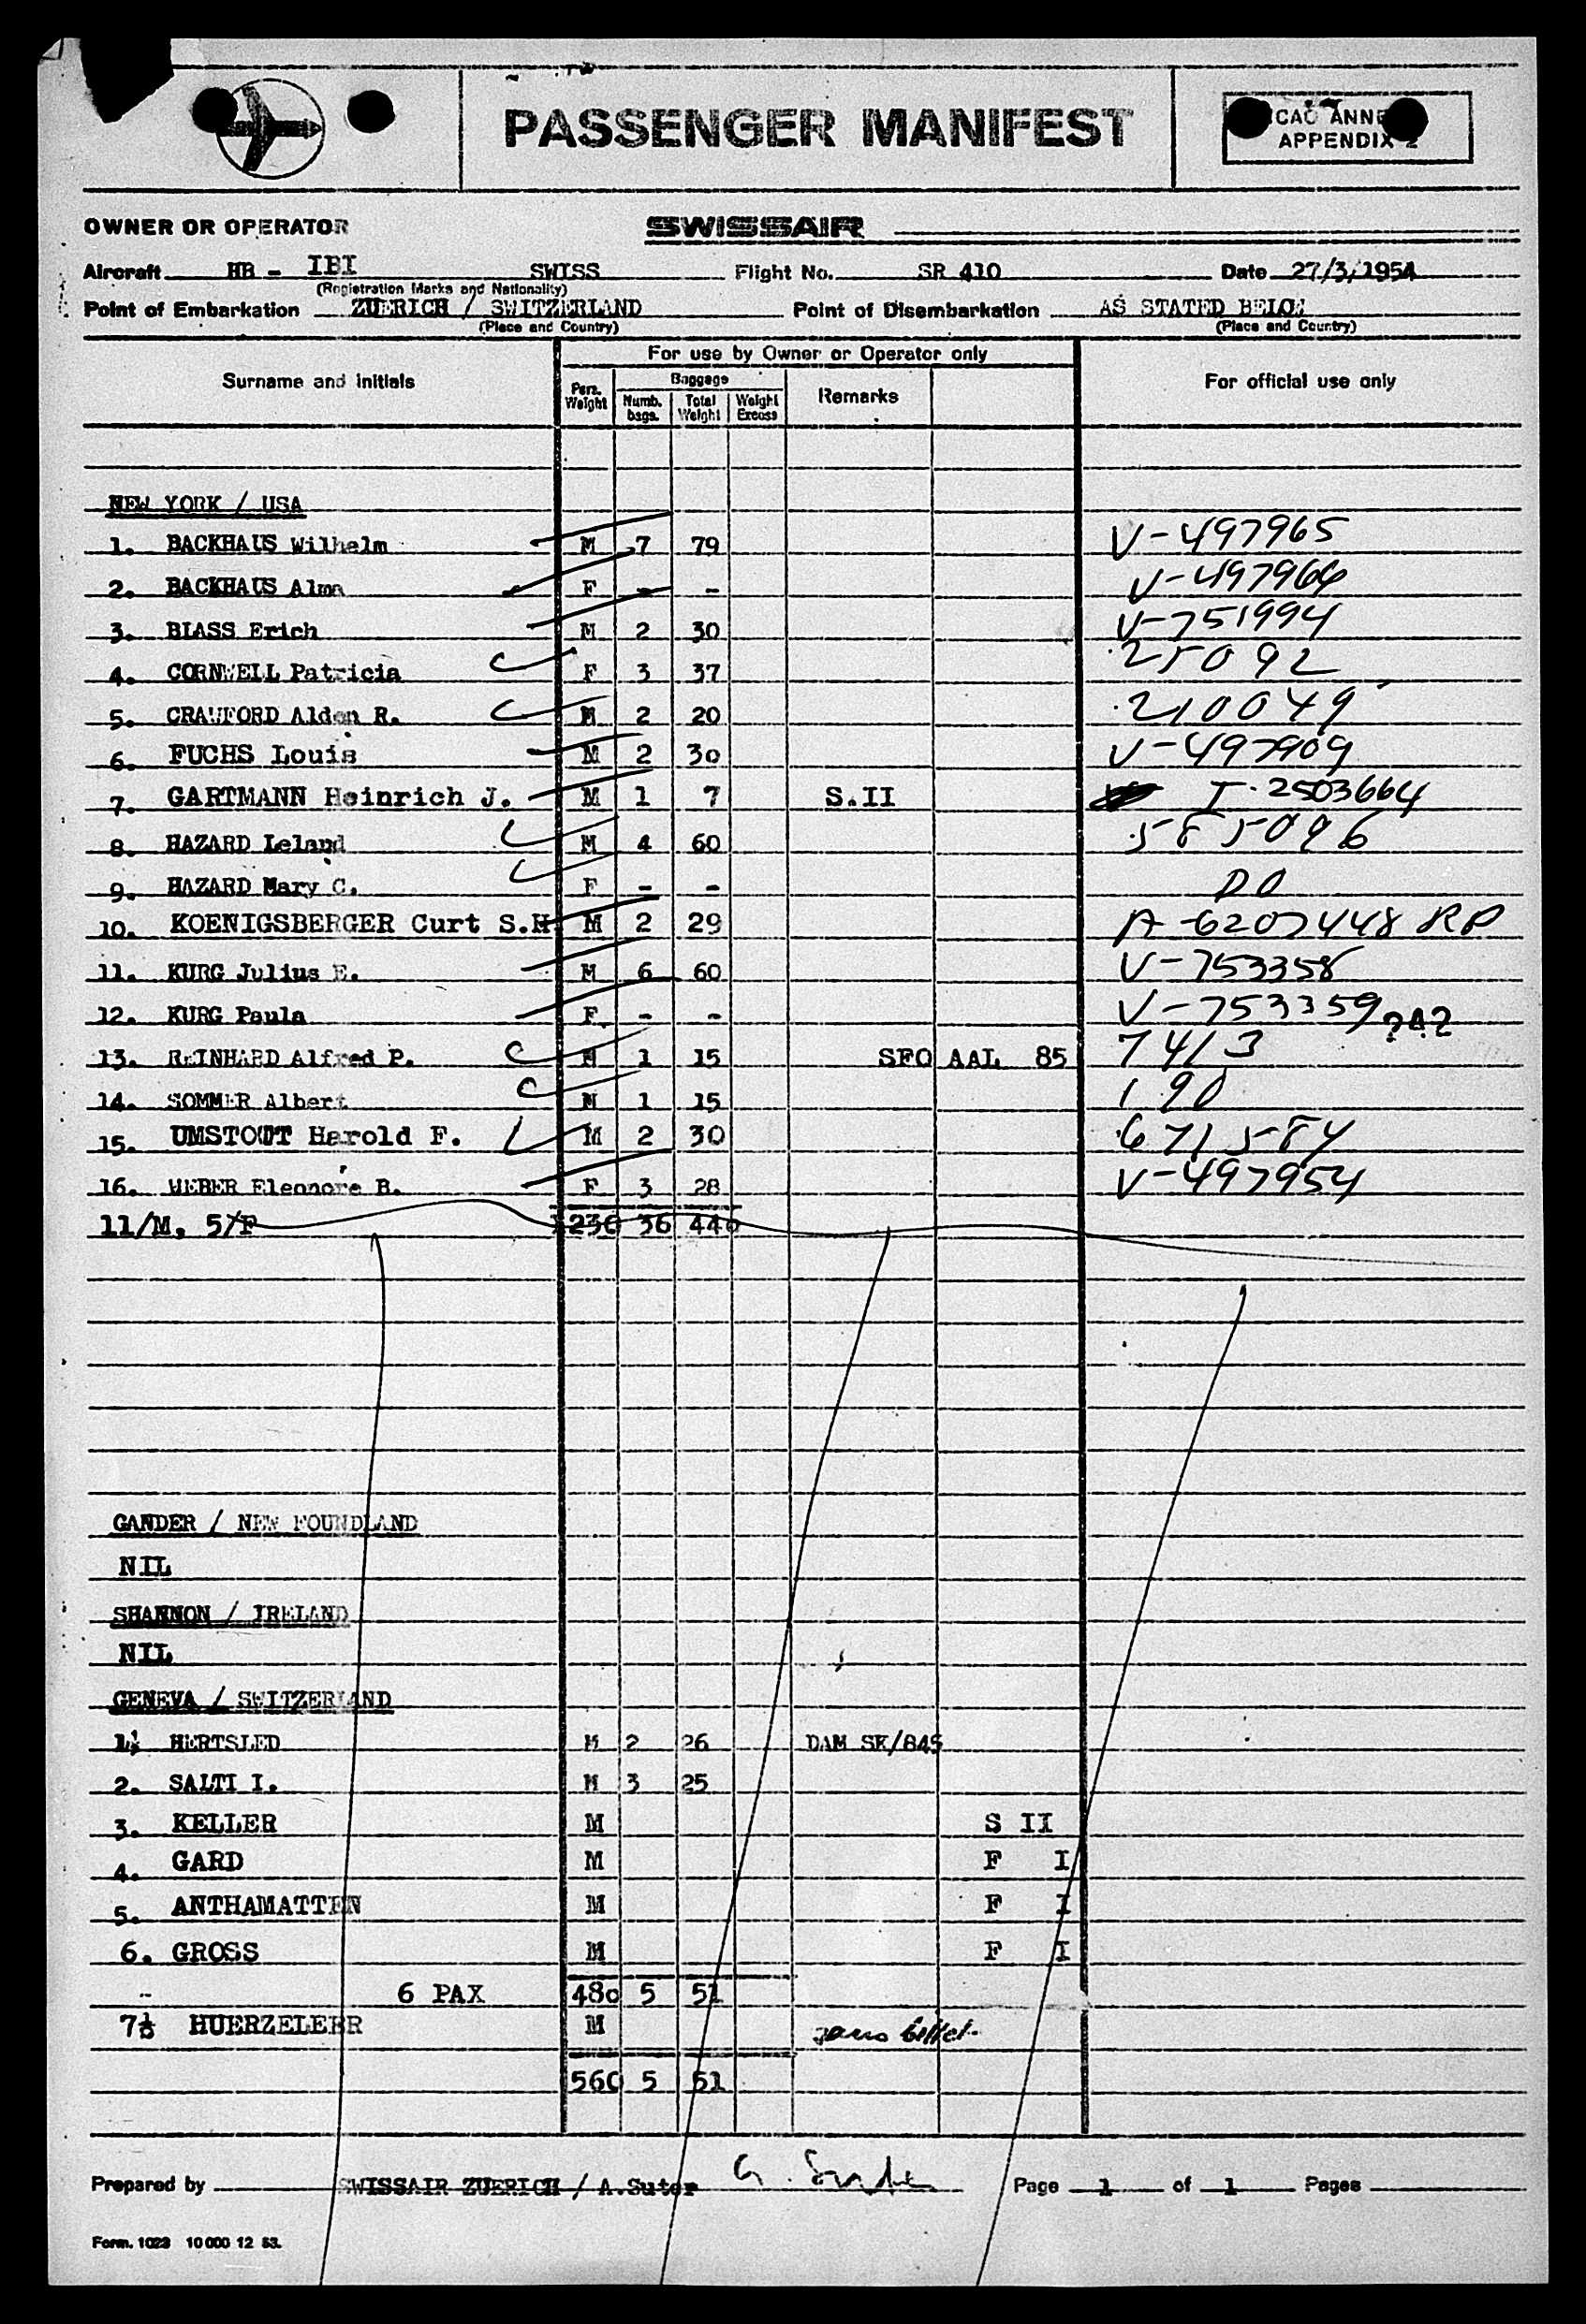 PASSENGER MANIFEST
CAO ANNE
APPENDIX 2
OWNER OR OPERATOR SWISSAIR
Aircraft HB - IBI SWISS Flight No. SR 410 Date 27/3/1954
(Registration Marks and Nationality)
Point of Embarkation ZUERICH / SWITZERLAND Point of Disembarkation AS STATED BELOW
(Place and Country) (Place and Country)
For use by Owner or Operator only
Surname and initials Pers. Weight Baggage Numb. bags. Total Weight Weight Excess Remarks For official use only
NEW YORK / USA
1. BACKHAUS Wilhelm M 7 79 V-497965
2. BACKHAUS Alma F - - V-497966
3. BIASS Erich M 2 30 V-751994
4. CORNWELL Patricia F 3 37 25092
5. CRAWFORD Alden R. M 2 20 210049
6. FUCHS Louis M 2 30 V-497909
7. GARTMANN Heinrich J. M 1 7 S.II I-2503664
8. HAZARD Leland M 4 60 585096
9. HAZARD Mary C. F - - DO
10. KOENIGSBERGER Curt S.H M 2 29 A-6207448 RP
11. KURG Julius E. M 6 60 V-753358
12. KURG Paula F - - V-753359
13. REINHARD Alfred P. M 1 15 SFO AAL 85 7413 ?A?
14. SOMMER Albert M 1 15 190
15. UMSTOUT Harold F. M 2 30 671584
16. WEBER Eleonore B. F 3 28 V-497954
11/M, 5/F 1230 36 440
GANDER / NEW FOUNDLAND
NIL
SHANNON / IRELAND
NIL
GENEVA / SWITZERLAND
1. HERTSLED M 2 26 DAM SK/845
2. SALTI I. M 3 25
3. KELLER M S II
4. GARD M F I
5. ANTHAMATTEN M F I
6. GROSS M F I
6 PAX 480 5 51
7. HUERZELEER M sans billet.
560 5 51
Prepared by SWISSAIR ZUERICH / A.Suter A. Suter Page 1 of 1 Pages
Form. 1023 10 000 12 53.